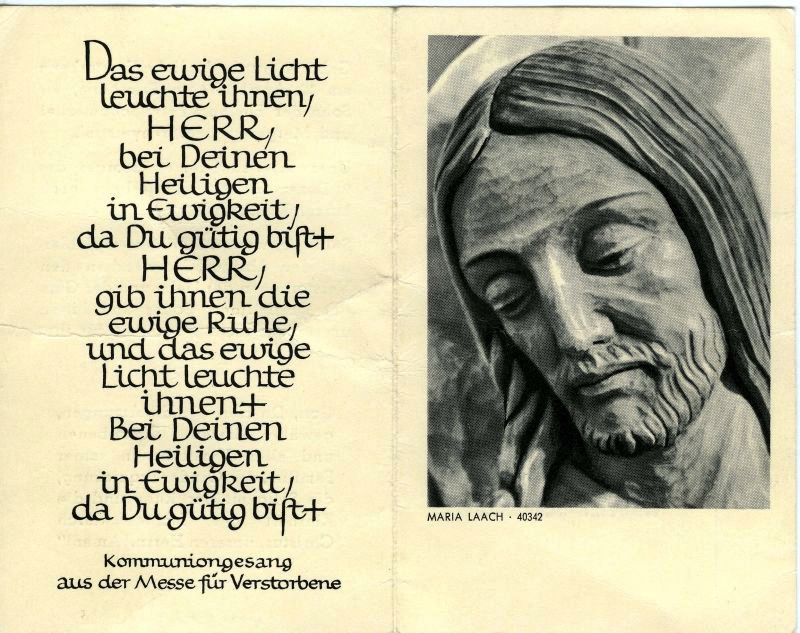 Das ewige Licht
leuchte ihnen,
HERR,
bei Deinen
Heiligen
in Ewigkeit,
da Du gütig bist+
HERR,
gib ihnen die
ewige Ruhe,
und das ewige
Licht leuchte
ihnen+
Bei Deinen
Heiligen
in Ewigkeit,
da Du gütig bist+
Kommuniongesang
aus der Messe für Verstorbene
MARIA LAACH · 40342